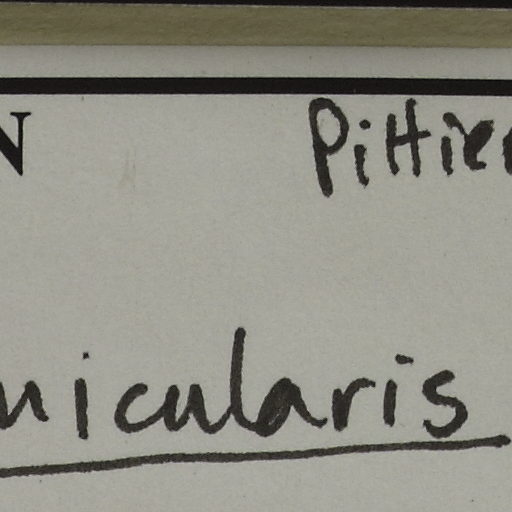 N Pittier
nicularis